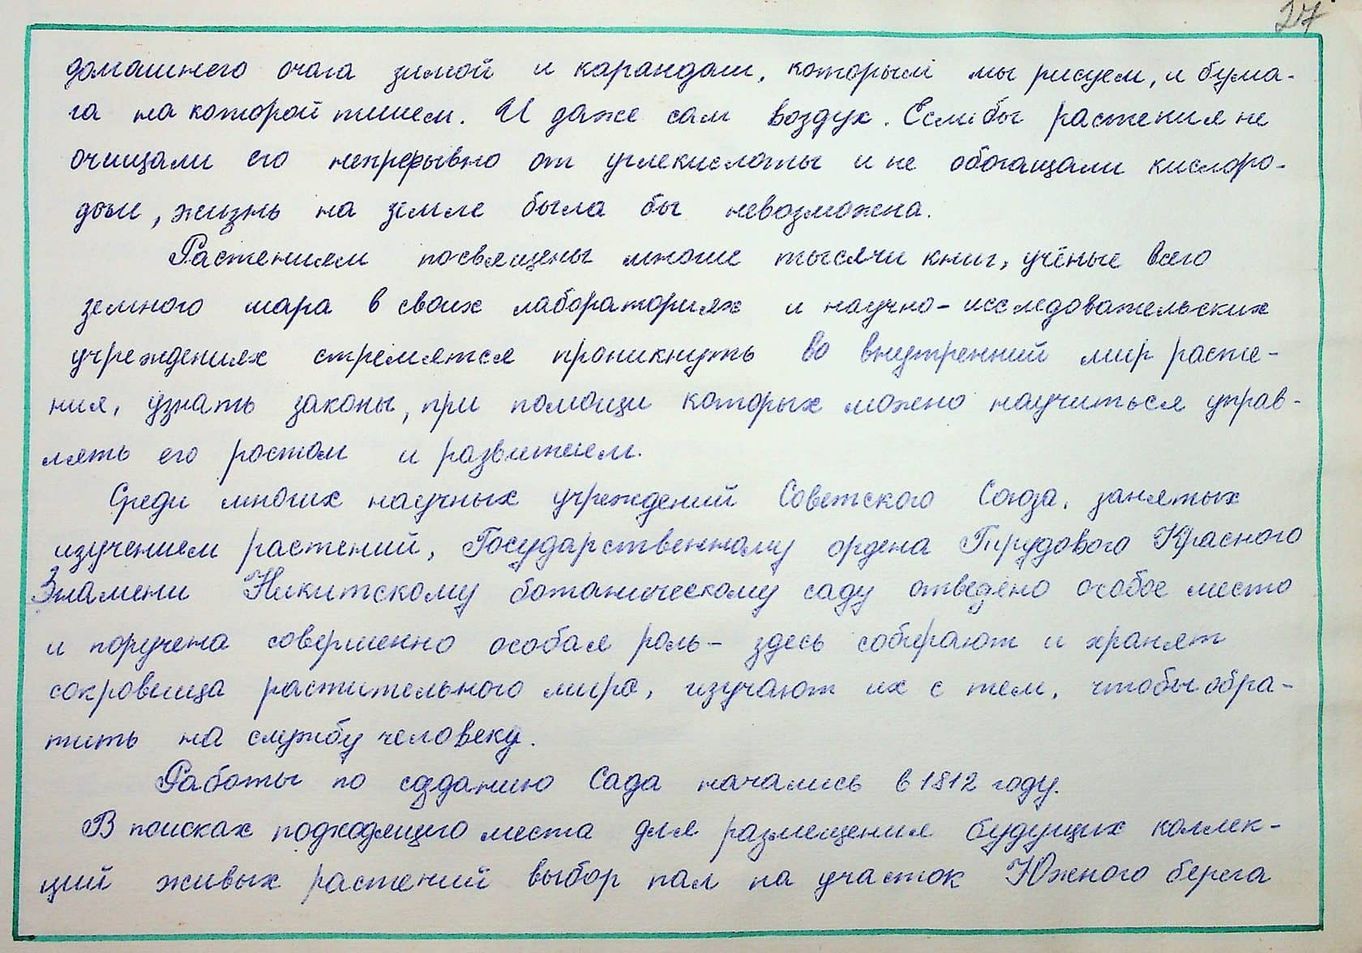 27
домашнего очага зимой и карандаш, которым мы рисуем, и бума-
га на которой пишем. И даже сам воздух. Если бы растения не
очищали его непрерывно от углекислоты и не обогащали кислоро-
дом, жизнь на земле была бы невозможна.
Растениям посвящены многие тысячи книг, учёные всего
земного шара в своих лабораториях и научно-исследовательских
учреждениях стремятся проникнуть во внутренний мир расте-
ния, узнать законы, при помощи которых можно научиться управ-
лять его ростом и развитием.
Среди многих научных учреждений Советского Союза, занятых
изучением растений, Государственному ордена Трудового Красного
Знамени Никитскому ботаническому саду отведено особое место
и поручена совершенно особая роль - здесь собирают и хранят
сокровища растительного мира, изучают их с тем, чтобы обра-
тить на службу человеку.
Работы по созданию Сада начались в 1812 году.
В поисках подходящего места для размещения будущих коллек-
ций живых растений выбор пал на участок Южного берега